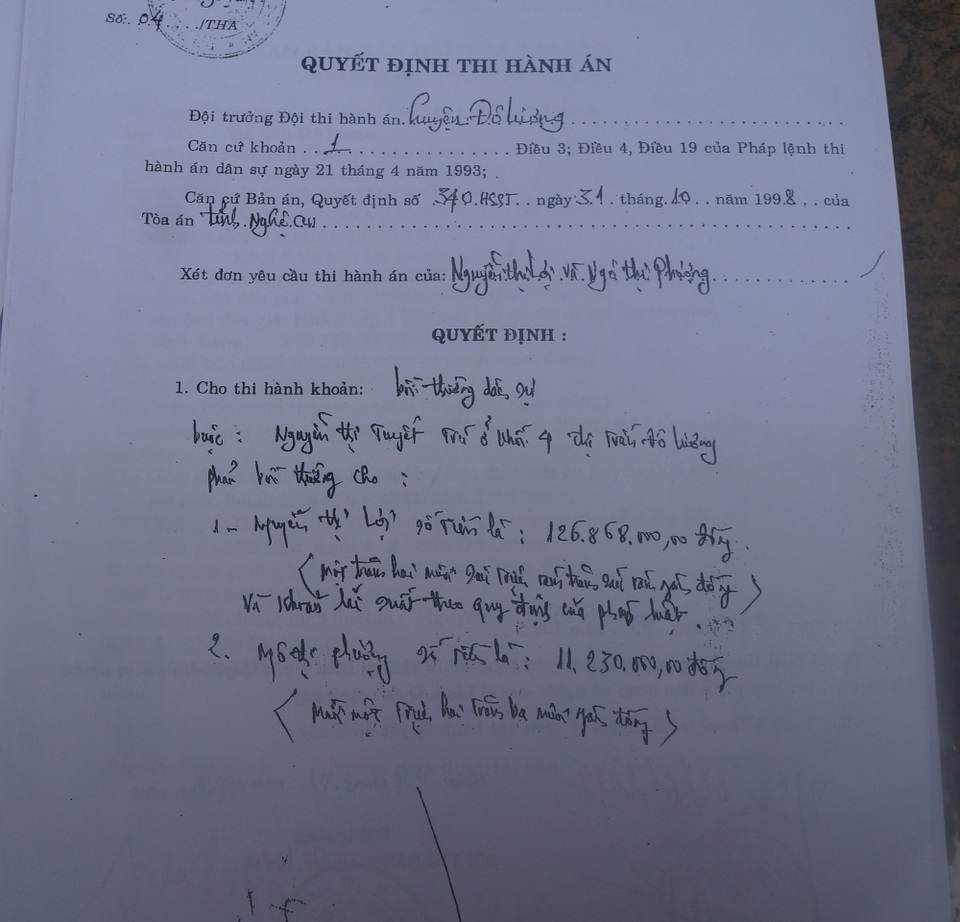 Số:. 04 . . . ./THA
QUYẾT ĐỊNH THI HÀNH ÁN
Đội trưởng Đội thi hành án. huyện Đô Lương
Căn cứ khoản . . 1 . . . . . . . . . . . . . . . Điều 3; Điều 4, Điều 19 của Pháp lệnh thi
hành án dân sự ngày 21 tháng 4 năm 1993;
Căn cứ Bản án, Quyết định số 340.HSST. . ngày 31 . tháng. 10 . . năm 1998 . . của
Tòa án tỉnh Nghệ an
Xét đơn yêu cầu thi hành án của: Nguyễn thị Lợi và Ngô thị Phượng
QUYẾT ĐỊNH :
1. Cho thi hành khoản: bồi thường dân sự
buộc : Nguyễn thị Tuyết Trú ở khối 4 thị trấn Đô lương
phải bồi thường cho :
1 - Nguyễn thị Lợi số tiền là : 126.868.000,00 đồng.
( Một trăm hai mươi sáu triệu tám trăm sáu tám ngàn đồng )
và khoản lãi suất theo quy định của pháp luật .
2. Ngô thị phượng số tiền là : 11,230.000,00 đồng
( Mười một triệu hai trăm ba mươi ngàn đồng )